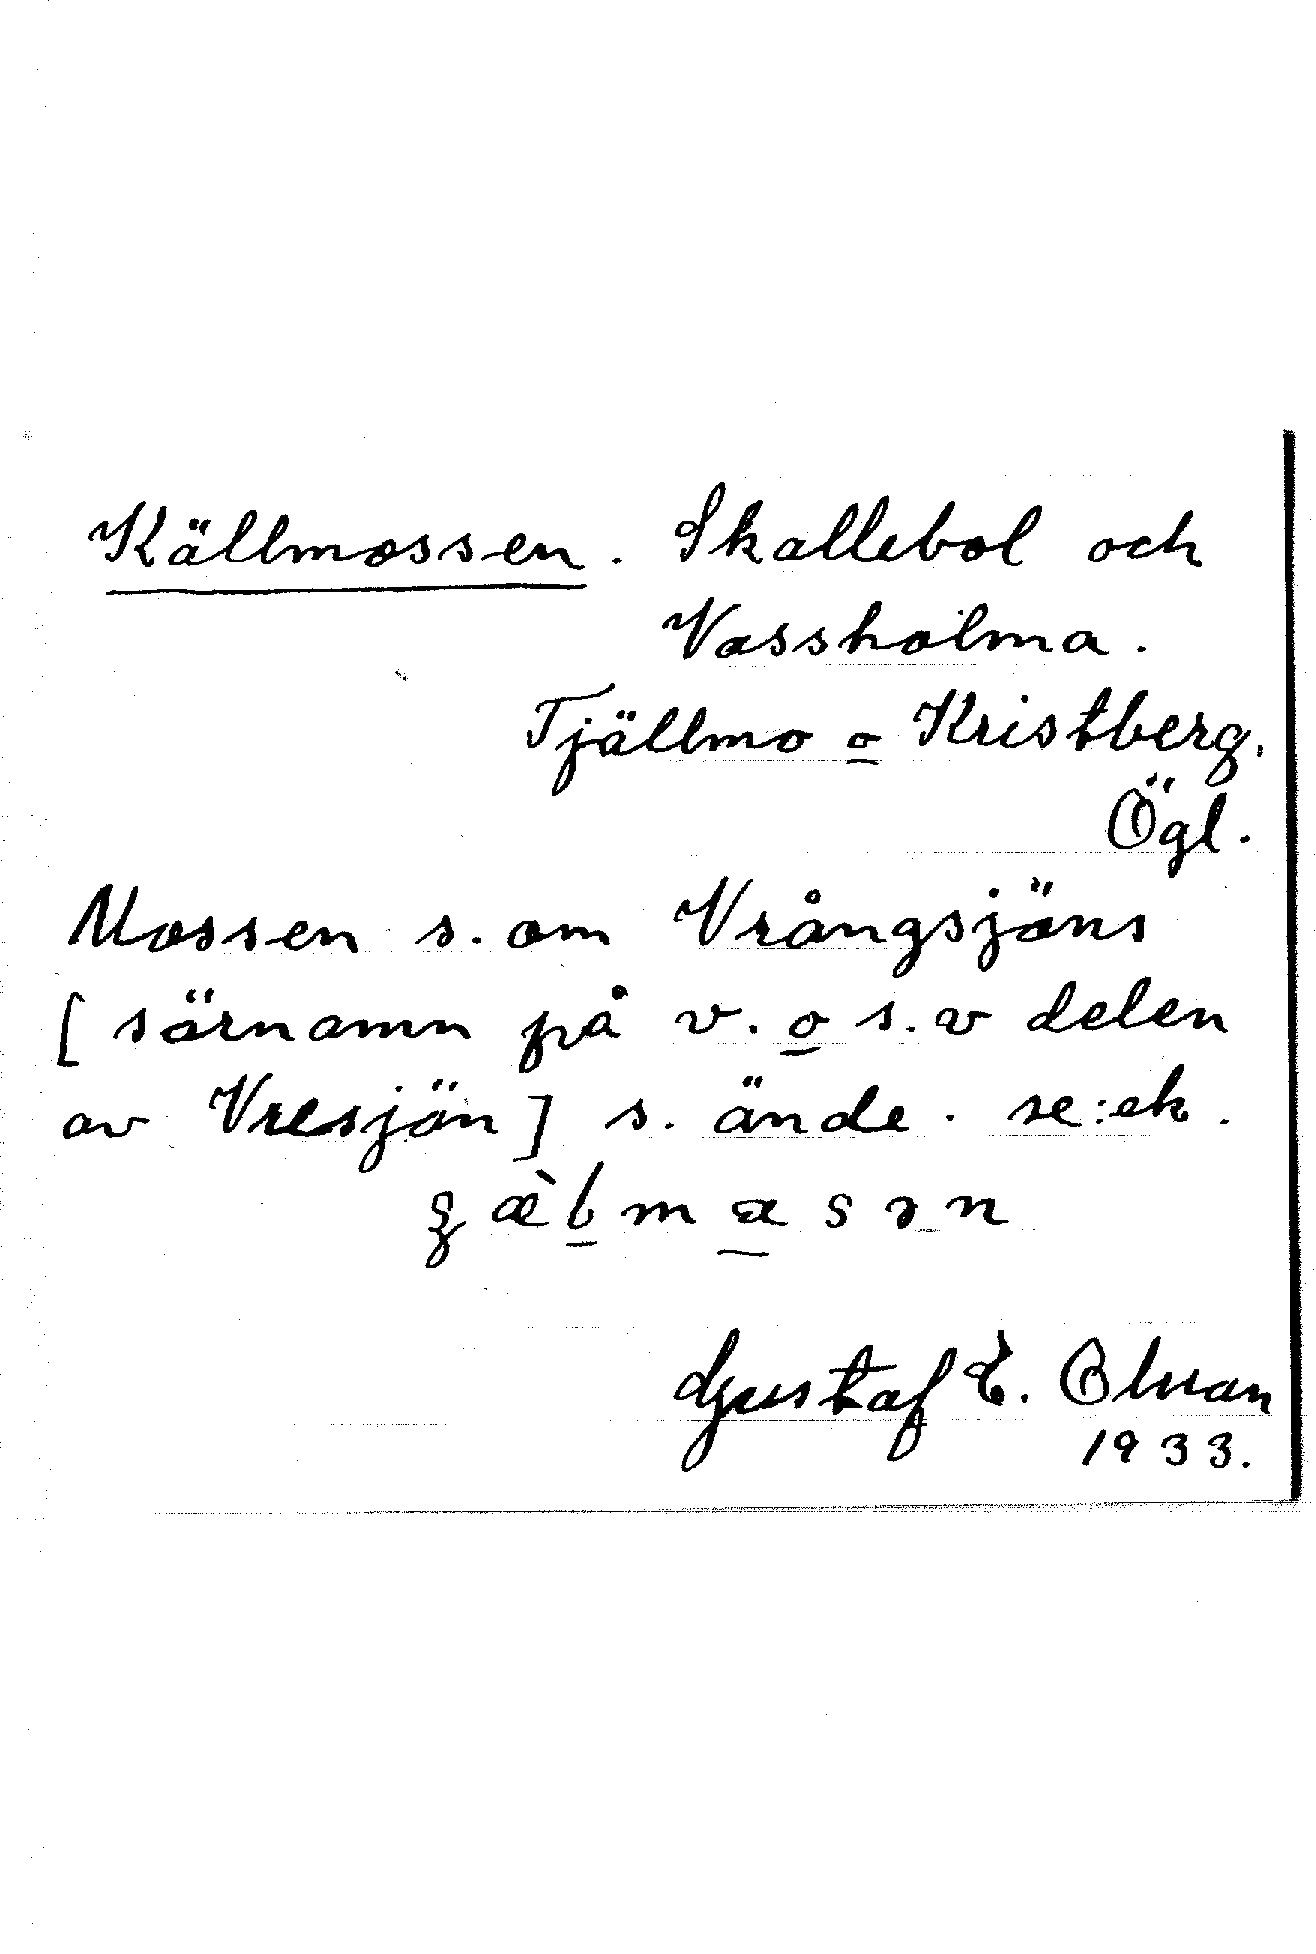 Källmossen. Skallebol och
Vassholma.
Tjällmo o Kristberg.
Ögl.
Mossen s. om Vrångsjöns
[särnamn på v. o s.v delen
av Vresjön] s. ände. se:ek.
Gustaf E.
1933.